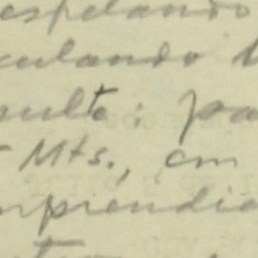 espelando
culando
sulta: pa
Mts., em
mprendia